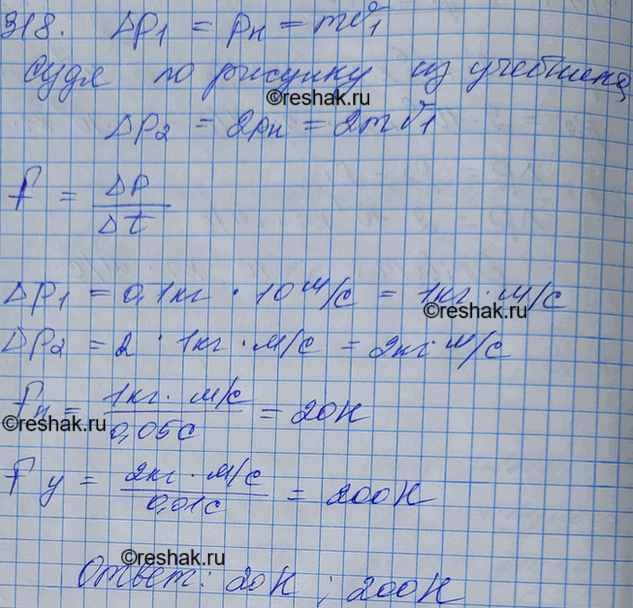 318. Δp₁ = pн = mv₁
Судя по рисунку из учебника,
©reshak.ru
Δp₂ = 2pн = 2mv₁
f = Δp / Δt
Δp₁ = 0,1кг · 10 м/с = 1кг · м/с
©reshak.ru
Δp₂ = 2 · 1кг · м/с = 2кг · м/с
fн = 1кг · м/с / 0,05с = 20Н
©reshak.ru
fу = 2кг · м/с / 0,01с = 200Н
©reshak.ru
Ответ: 20Н ; 200Н